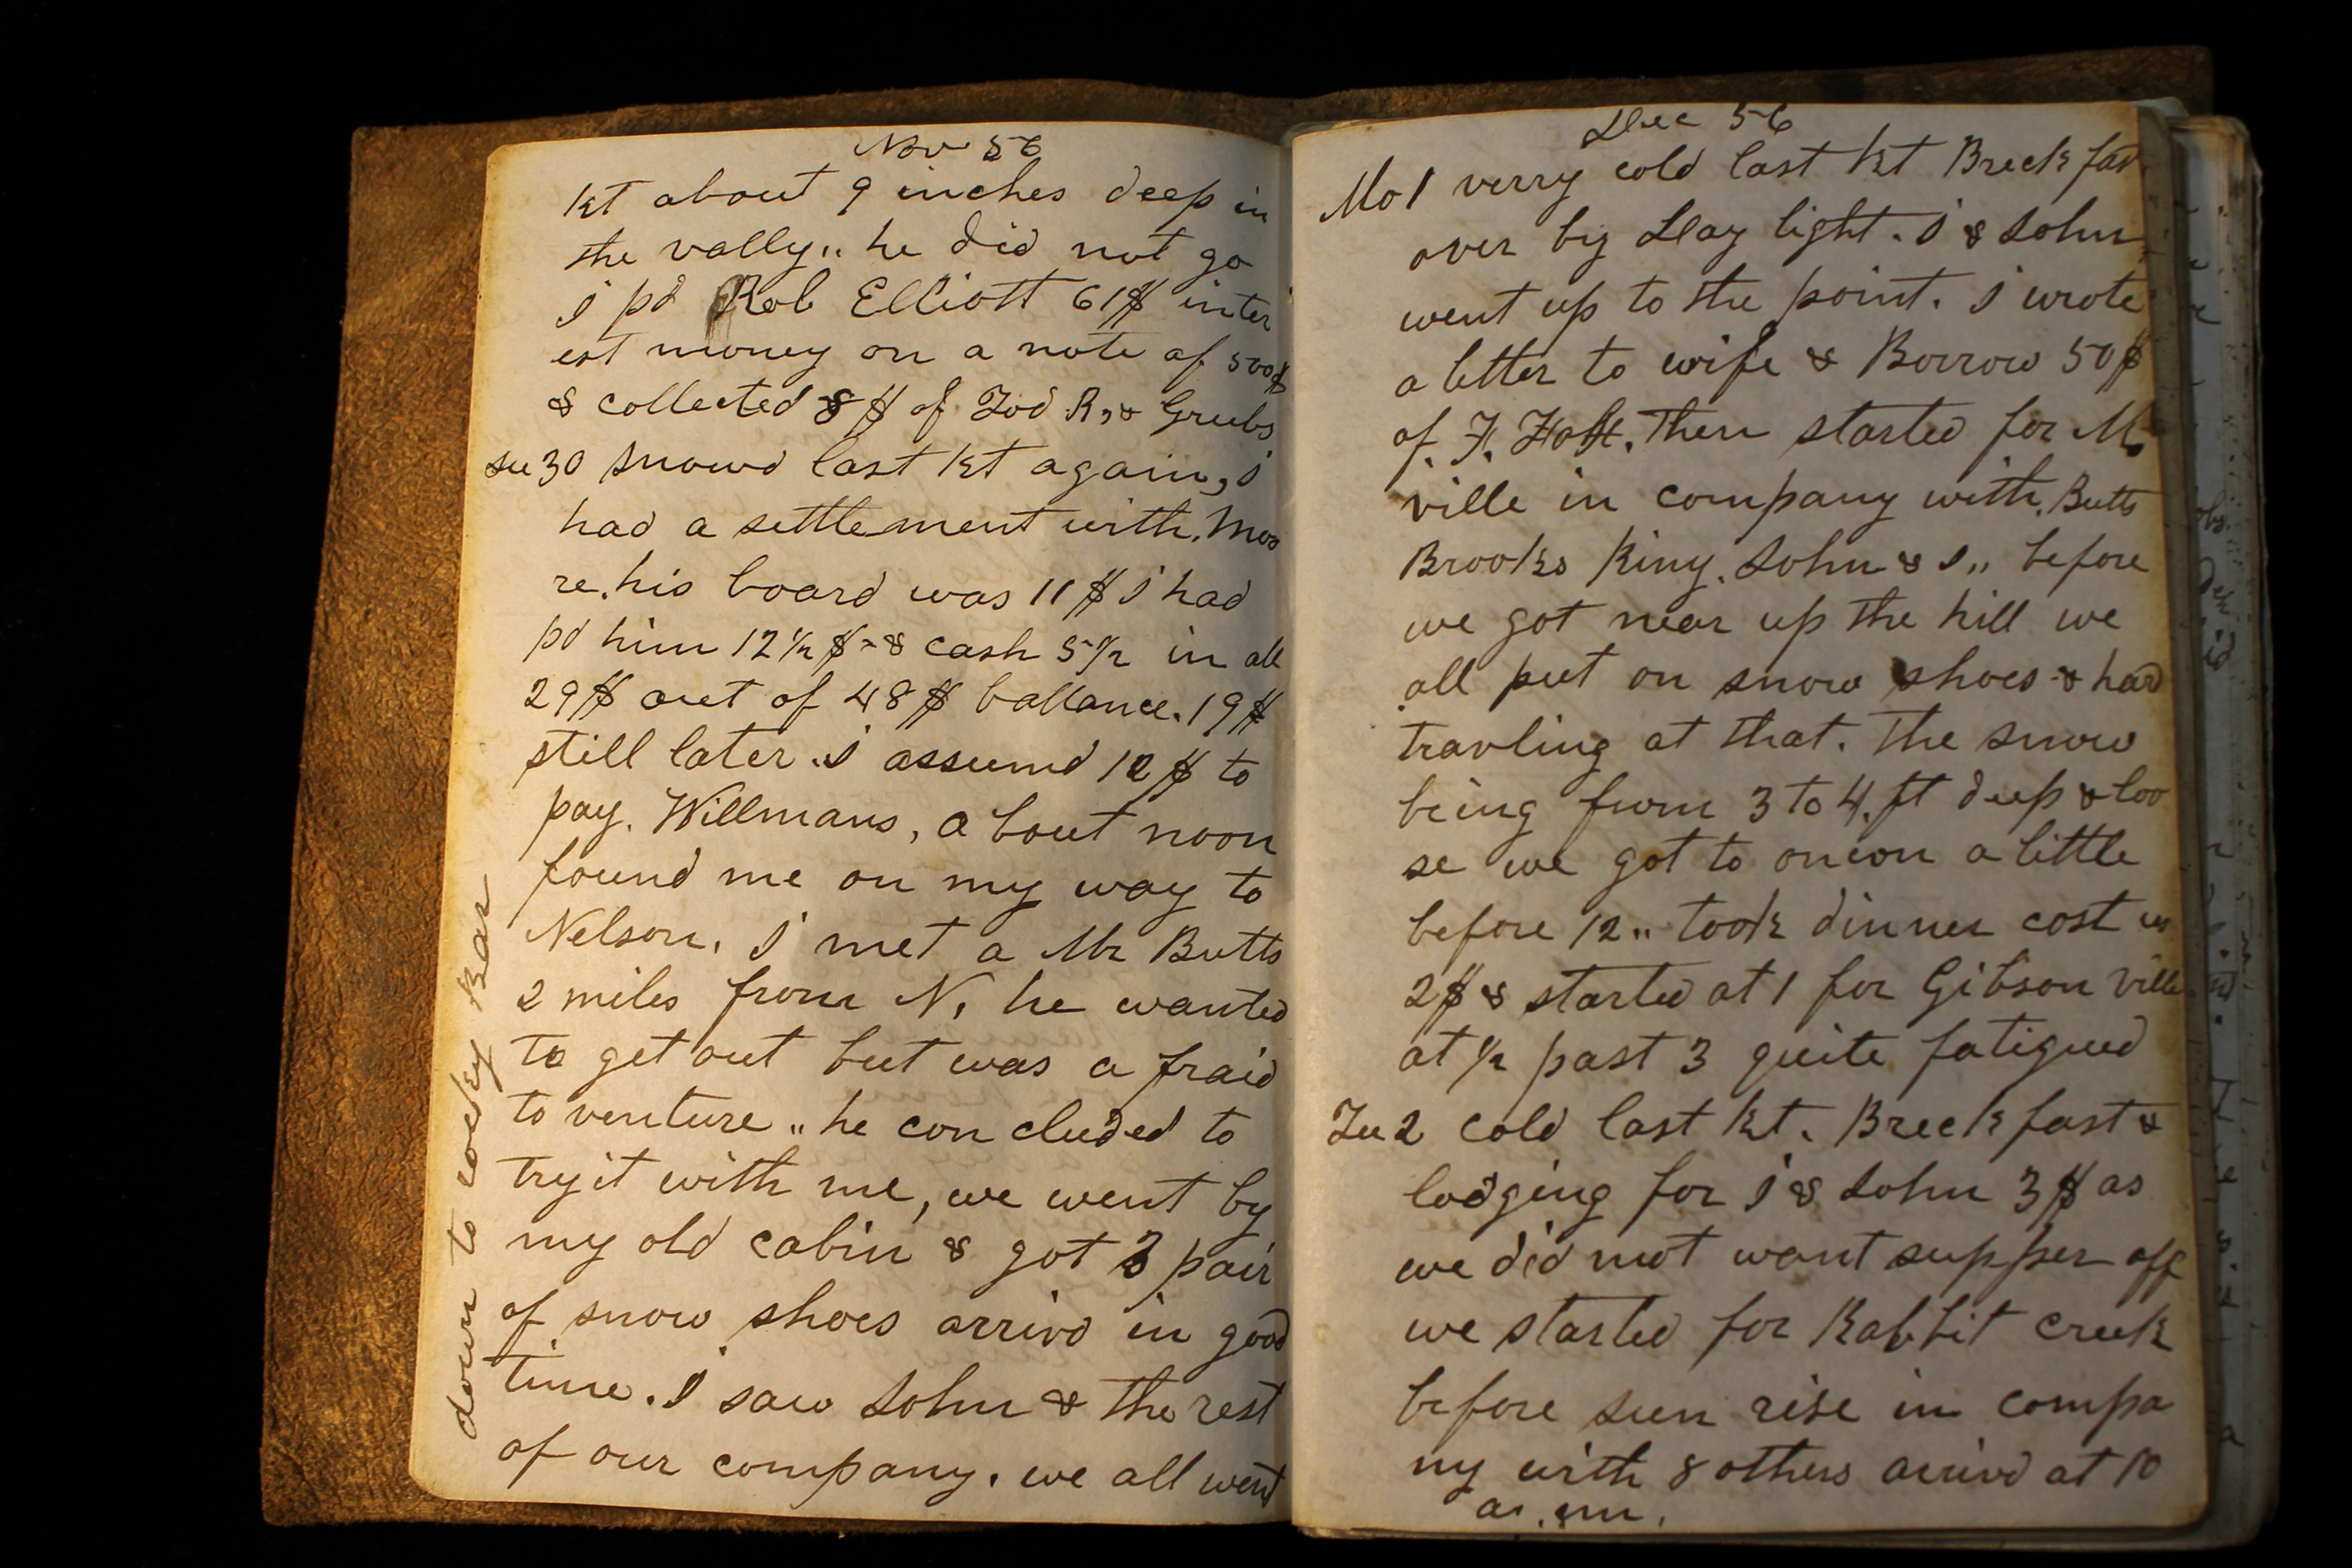 Nov 56
kt about 9 inches deep in
the vally,, he did not go
I pd Rob Elliott 61$ inter
est money on a note of 500$
& collected 8$ of Tod R, & Grubs
su 30 snowd last kt again, I
had a settlement with. Moo
re. his board was 11$ I had
pd him 12½$ - & cash 5½ in all
29$ out of 48$ ballance. 19$
still later. I assumd 12$ to
pay. Willmans, a bout noon
found me on my way to
Nelson, I met a Mr Butts
2 miles from N, he wanted
to get out but was a fraid
to venture ,, he con cluded to
try it with me, we went by
my old cabin & got 3 pair
of snow shoes arrivd in good
time. I saw John & the rest
of our company. we all went
down to rocky Bar
Dec 56
Mo 1 verry cold last kt Breck fast
over by Day light. I & John
went up to the point. I wrote
a letter to wife & Borrow 50$
of. F. Then started for M.
ville in company with. Butts
Brooks King. John & I ,, before
we got near up the hill we
all put on snow shoes & hard
travling at that. The snow
being from 3 to 4. ft deep & loo
se we got to onion a little
before 12 ,, took dinner cost us
2$ & started at 1 for Gibson ville
at ½ past 3 quite fatigued
Tu 2 cold last kt. Breck fast &
lodging for I & John 3$ as
we did not want supper off
we started for Rabbit creek
before sun rise in compa
ny with 8 others arrivd at 10
a. m.